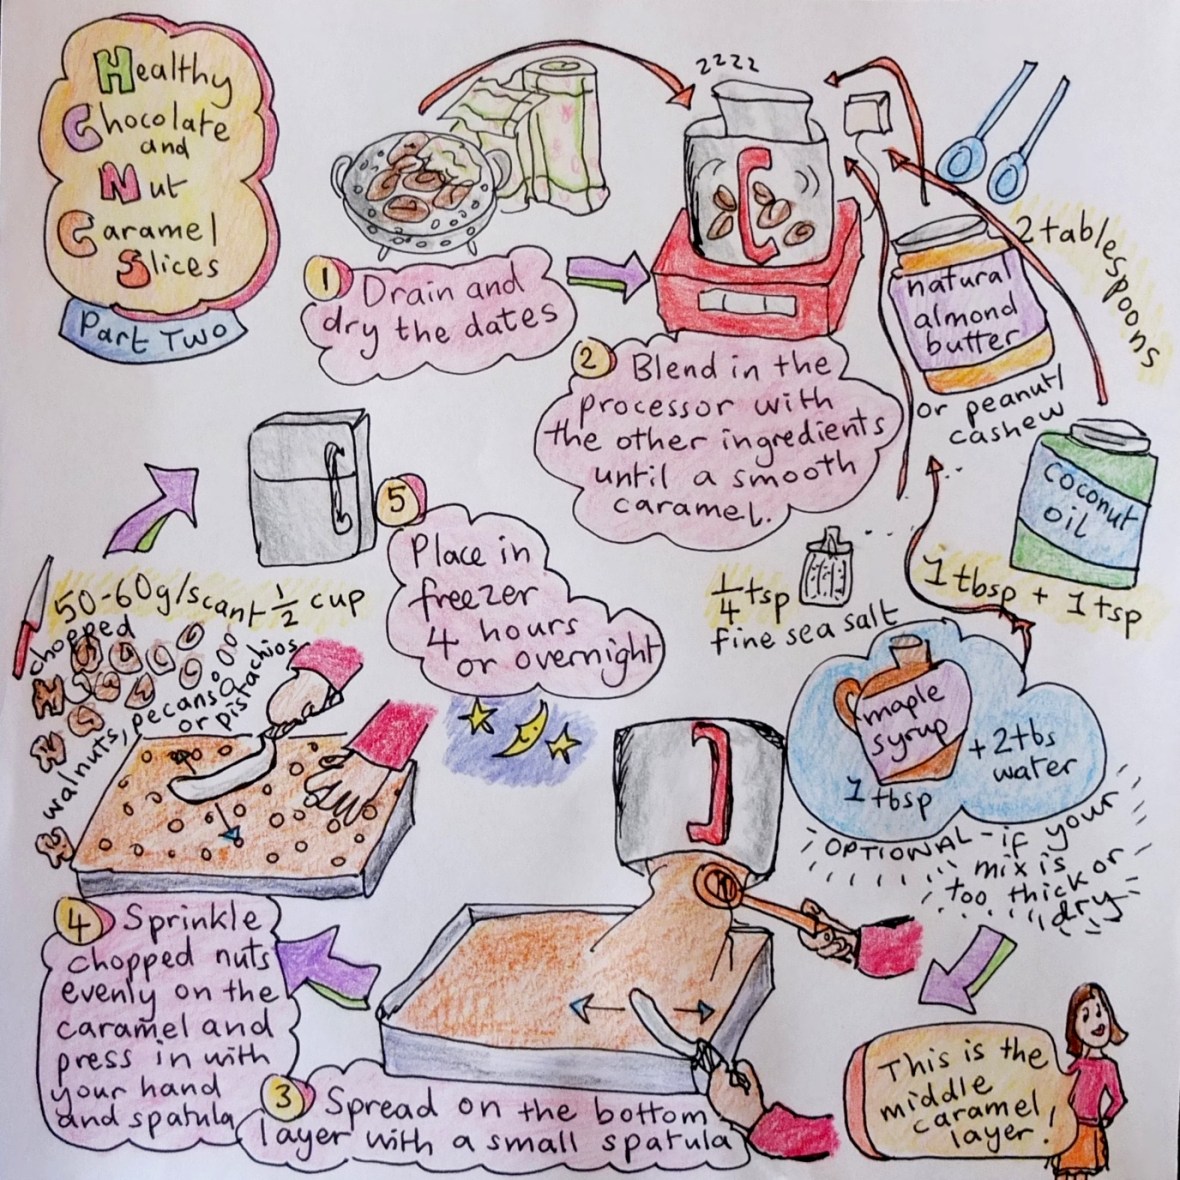 Healthy
Chocolate
and
Nut
Caramel
Slices
Part Two
zzzz
1 Drain and
dry the dates
2 Blend in the
processor with
the other ingredients
until a smooth
caramel.
2 tablespoons
natural
almond
butter
or peanut/
cashew
coconut
oil
1 tbsp + 1 tsp
1/4 tsp
fine sea salt
maple
syrup
1 tbsp
+ 2 tbs
water
OPTIONAL - if your
mix is
too thick or
dry
This is the
middle
caramel
layer!
3 Spread on the bottom
layer with a small spatula
4 Sprinkle
chopped nuts
evenly on the
caramel and
press in with
your hand
and spatula
50-60g/scant 1/2 cup
chopped
walnuts, pecans
or pistachios
5
Place in
freezer
4 hours
or overnight